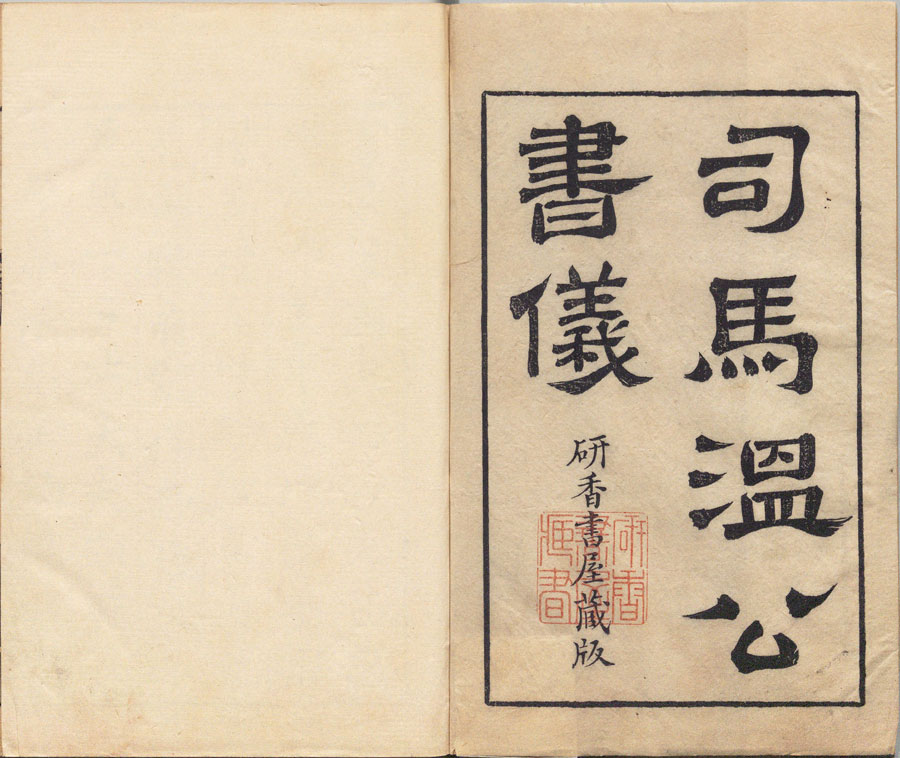 司馬溫公
書儀
研香書屋藏版
研香書屋藏書